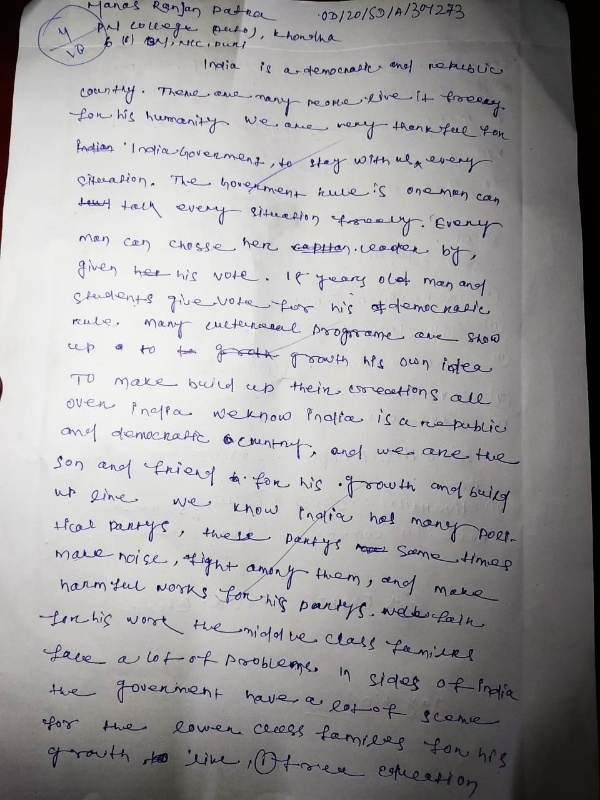 Manas Ranjan Patra OD/20/SD/A/304273
4/10
College, Khordha
6 (1) BN, NCC, Puri
India is a democratic and republic
country. There are many people live it freely.
for his humanity we are very thankful for
India Goverment, to stay with us, every
situation. The Goverment rule is oneman can
talk every situation freely. Every
man can chosse her leader by,
given his vote. 18 years old man and
students give vote for his democratic
rule. many programe are show
up to growth his own idea
TO make build up their creations all
over india we know india is a republic
and democratic country, and we are the
son and friend for his growth and build
up line we know india has many poli-
tical partys, these partys some times
make noise, fight among them, and make
harmful works for his partys.
for his work the middle class familes
face a lot of problems. in sides of India
the goverment have a lot of sceme
for the lower class familes for his
growth live, (1) free education